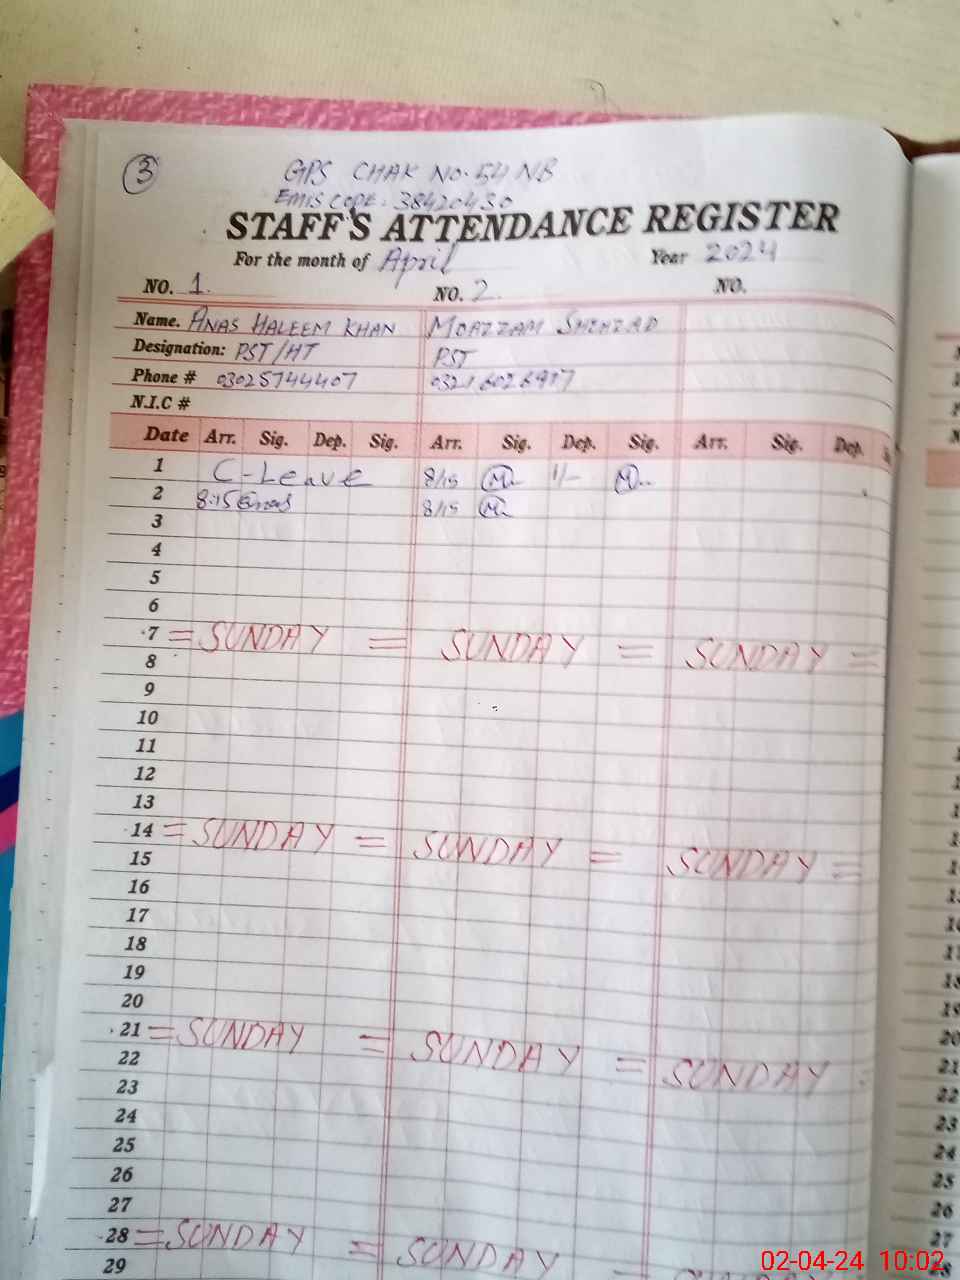 3
GPS CHAK NO. 54 NB
EMIS CODE: 38420430
STAFF'S ATTENDANCE REGISTER
For the month of April Year 2024
NO. 1. NO. 2. NO.
Name. ANAS HALEEM KHAN MOAZZAM SHEHZAD
Designation: PST/HT PST
Phone # 03025744407
N.I.C #
Date Arr. Sig. Dep. Sig. Arr. Sig. Dep. Sig. Arr. Sig. Dep.
1 C-Leave 8/15 1/-
2 8:15 8/15
3
4
5
6
7 = SUNDAY = SUNDAY = SUNDAY =
8
9
10
11
12
13
14 = SUNDAY = SUNDAY = SUNDAY =
15
16
17
18
19
20
21 = SUNDAY = SUNDAY = SUNDAY
22
23
24
25
26
27
28 = SUNDAY = SUNDAY
29
02-04-24 10:02